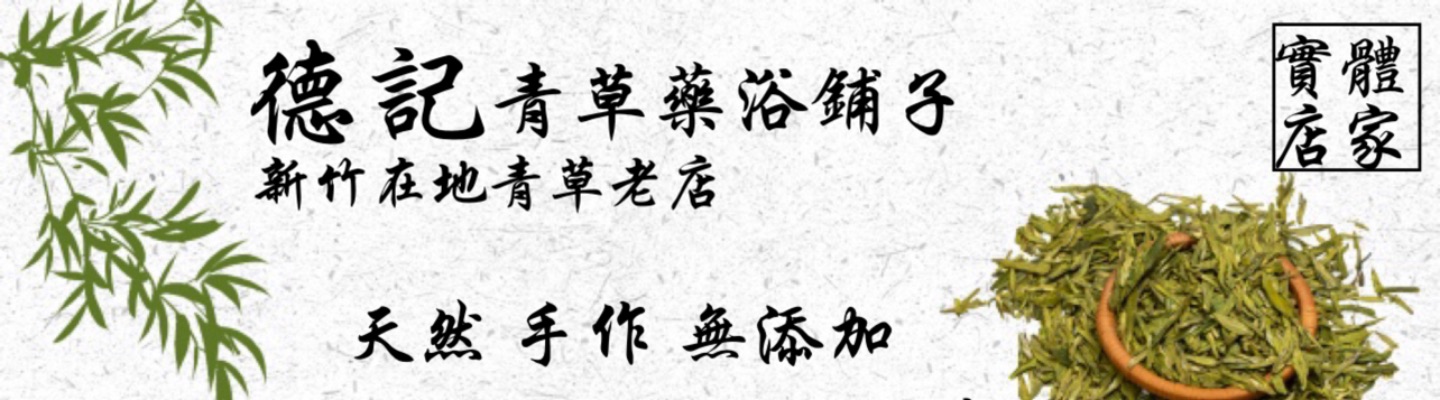 德記青草藥浴鋪子
新竹在地青草老店
天然 手作 無添加
實體
店家